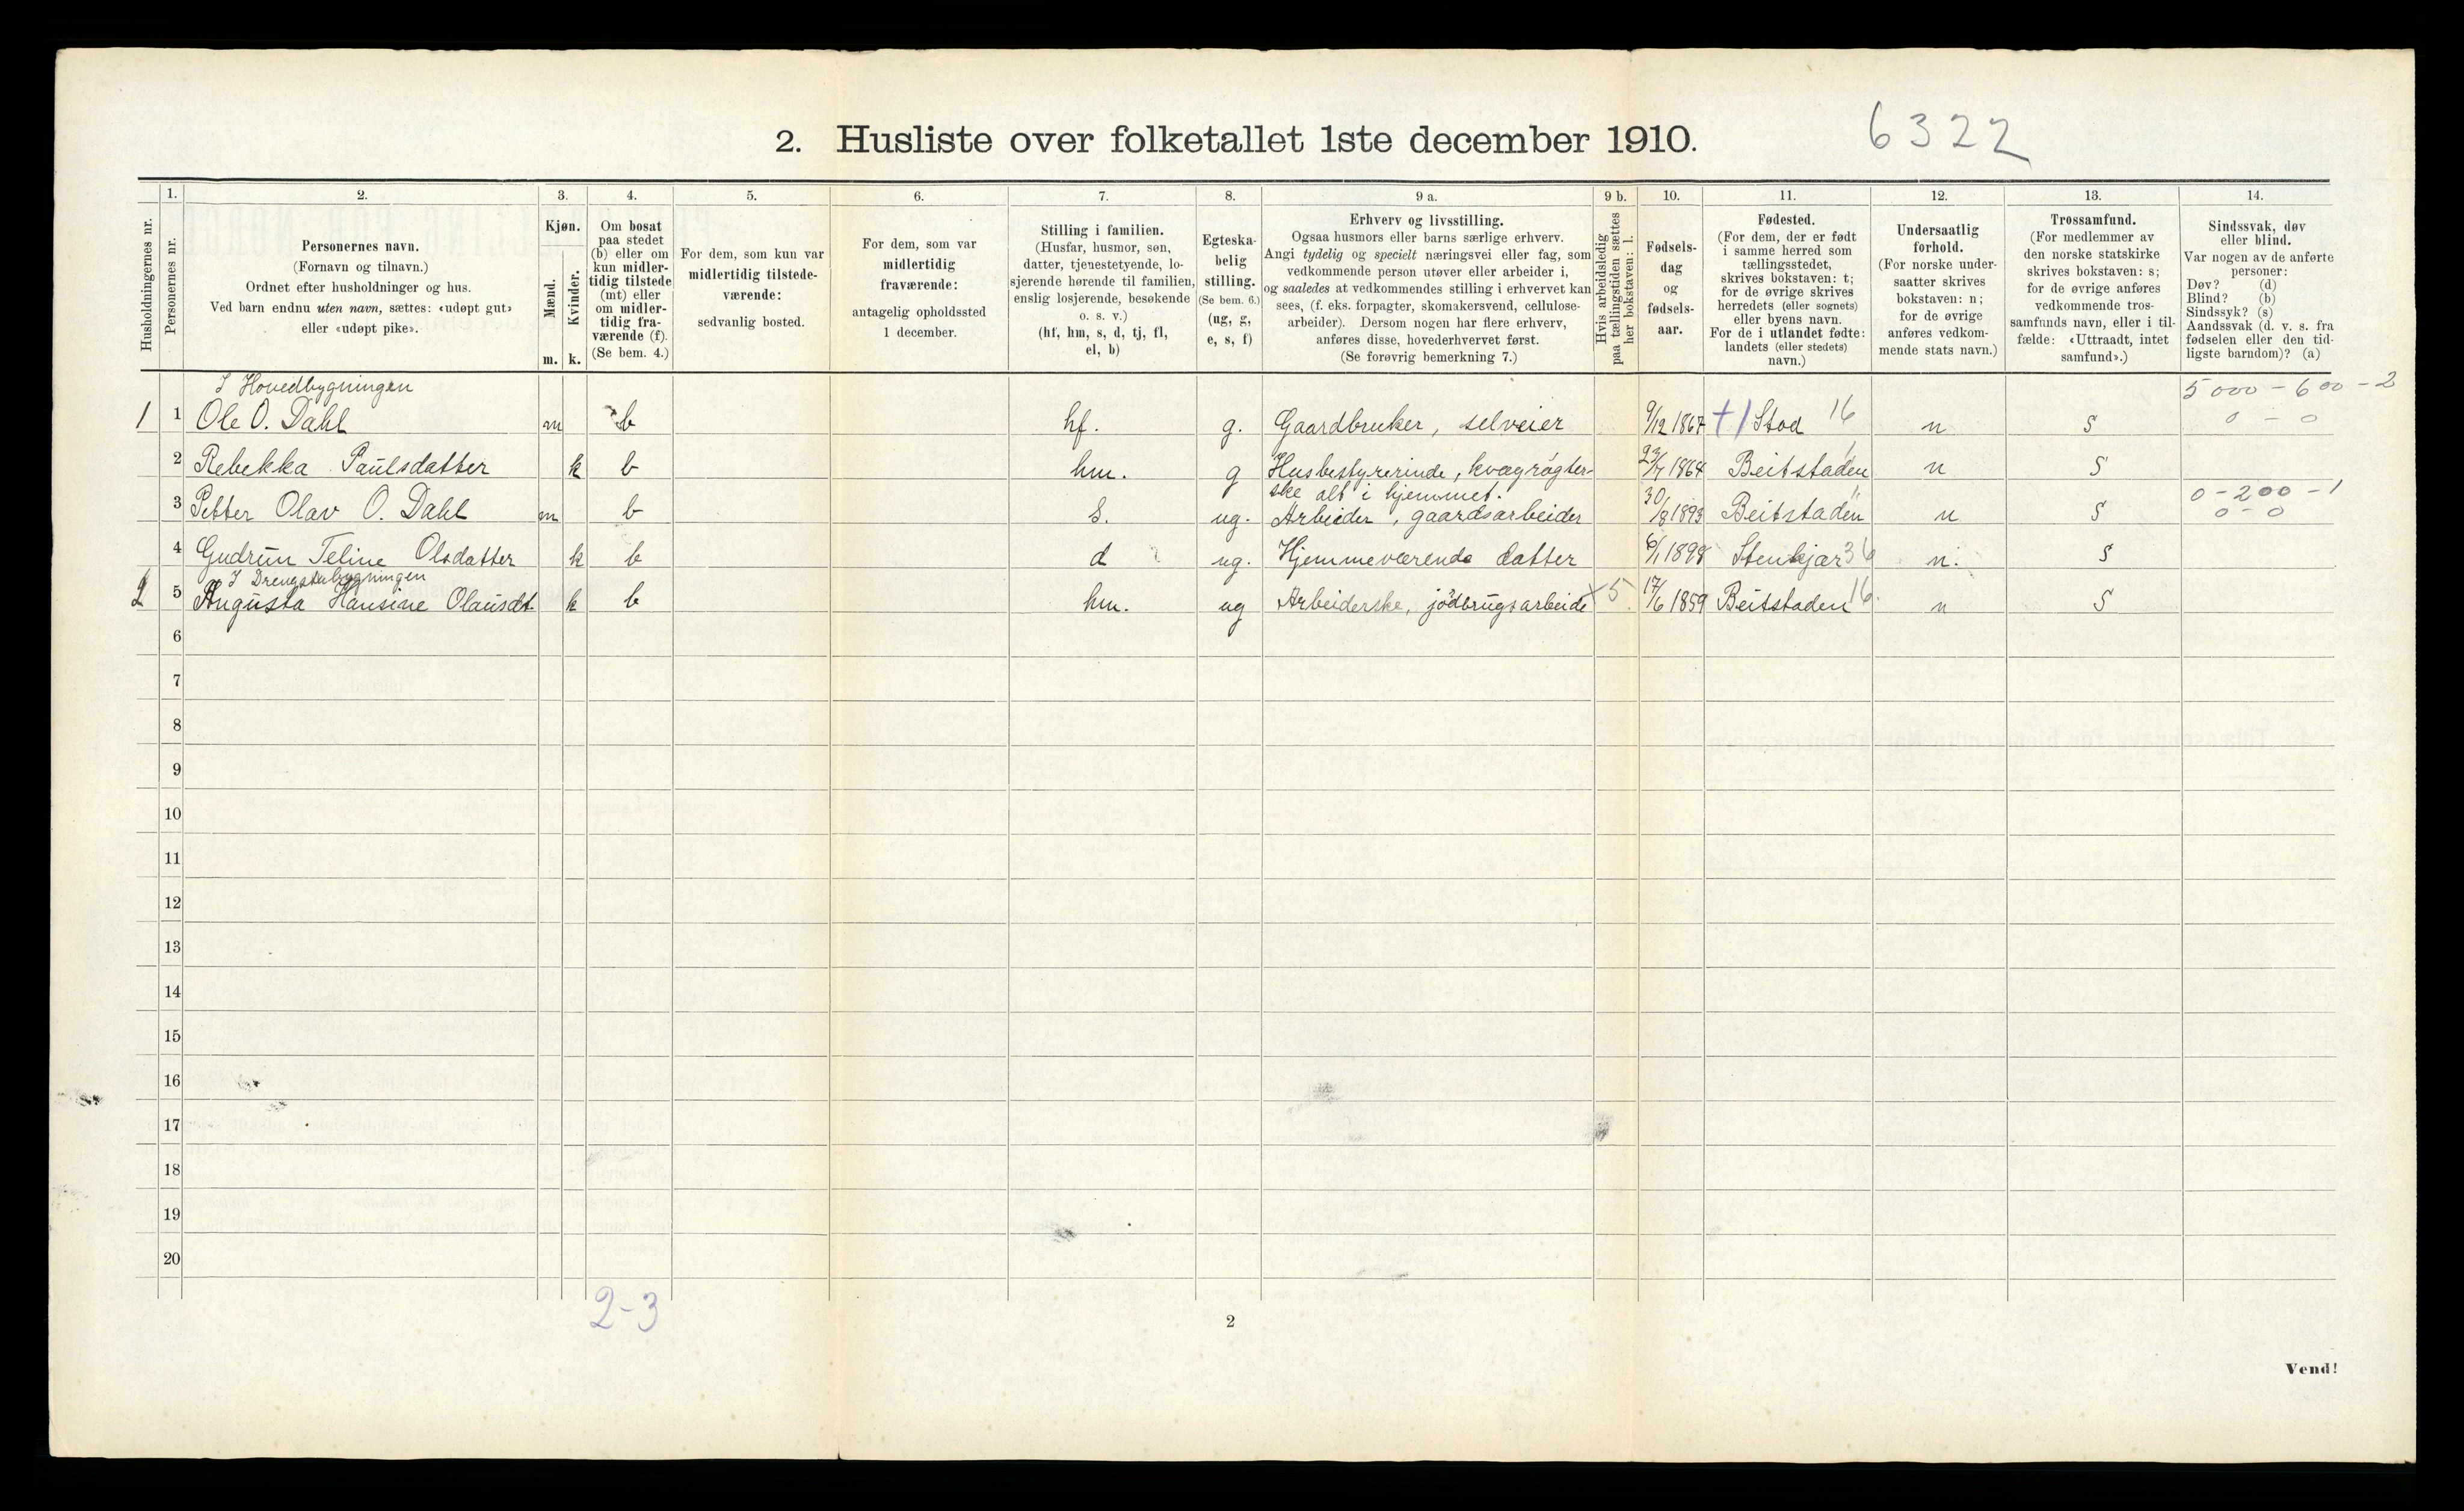 2. Husliste over folketallet 1ste december 1910.
6322
Husholdningernes nr.
1.
Personernes nr.
2.
Personernes navn.
(Fornavn og tilnavn.)
Ordnet efter husholdninger og hus.
Ved barn endnu uten navn, sættes: «udøpt gut»
eller «udøpt pike».
3.
Kjøn.
Mænd.
Kvinder.
m. k.
4.
Om bosat
paa stedet
(b) eller om
kun midler-
tidig tilstede
(mt) eller
om midler-
tidig fra-
værende (f).
(Se bem. 4.)
5.
For dem, som kun var
midlertidig tilstede-
værende:
sedvanlig bosted.
6.
For dem, som var
midlertidig
fraværende:
antagelig opholdssted
1 december.
7.
Stilling i familien.
(Husfar, husmor, søn,
datter, tjenestetyende, lo-
sjerende hørende til familien,
enslig losjerende, besøkende
o. s. v.)
(hf, hm, s, d, tj, fl,
el, b)
8.
Egteska-
belig
stilling.
(Se bem. 6.)
(ug, g,
e, s, f)
9 a.
Erhverv og livsstilling.
Ogsaa husmors eller barns særlige erhverv.
Angi tydelig og specielt næringsvei eller fag, som
vedkommende person utøver eller arbeider i,
og saaledes at vedkommendes stilling i erhvervet kan
sees, (f. eks. forpagter, skomakersvend, cellulose-
arbeider). Dersom nogen har flere erhverv,
anføres disse, hovederhvervet først.
(Se forøvrig bemerkning 7.)
9 b.
Hvis arbeidsledig
paa tællingstiden sættes
her bokstaven: l.
10.
Fødsels-
dag
og
fødsels-
aar.
11.
Fødested.
(For dem, der er født
i samme herred som
tællingsstedet,
skrives bokstaven: t;
for de øvrige skrives
herredets (eller sognets)
eller byens navn.
For de i utlandet fødte:
landets (eller stedets)
navn.)
12.
Undersaatlig
forhold.
(For norske under-
saatter skrives
bokstaven: n;
for de øvrige
anføres vedkom-
mende stats navn.)
13.
Trossamfund.
(For medlemmer av
den norske statskirke
skrives bokstaven: s;
for de øvrige anføres
vedkommende tros-
samfunds navn, eller i til-
fælde: «Uttraadt, intet
samfund».)
14.
Sindssvak, døv
eller blind.
Var nogen av de anførte
personer:
Døv? (d)
Blind? (b)
Sindssyk? (s)
Aandssvak (d. v. s. fra
fødselen eller den tid-
ligste barndom)? (a)
I Hovedbygningen
5000 - 600 - 2
1 1 Ole O. Dahl m b hf. g. Gaardbruker, selveier 9/12 1867 +1 Stod 16 n s 0 - 0
2 Rebekka Paulsdatter k b hm. g Husbestyrerinde, kvægrøgter-
ske alt i hjemmet. 1864 Beitstaden n s
0 - 200 - 1
3 Petter Olav O. Dahl m b s. ug. Arbeider, gaardsarbeider 30/8 1893 Beitstaden n s 0 - 0
4 Gudrun Teline Olsdatter k b d ug. Hjemmeværende datter 6/1 1898 Stenkjær 36 n. s
I Drengstubygningen
2 5 Augusta Hansine Olausdt. k b hm. ug Arbeiderske, jodbrugsarbeide +5 17/6 1859 Beitstaden 16. n s
6
7
8
9
10
11
12
13
14
15
16
17
18
19
20
2-3
2
Vend!